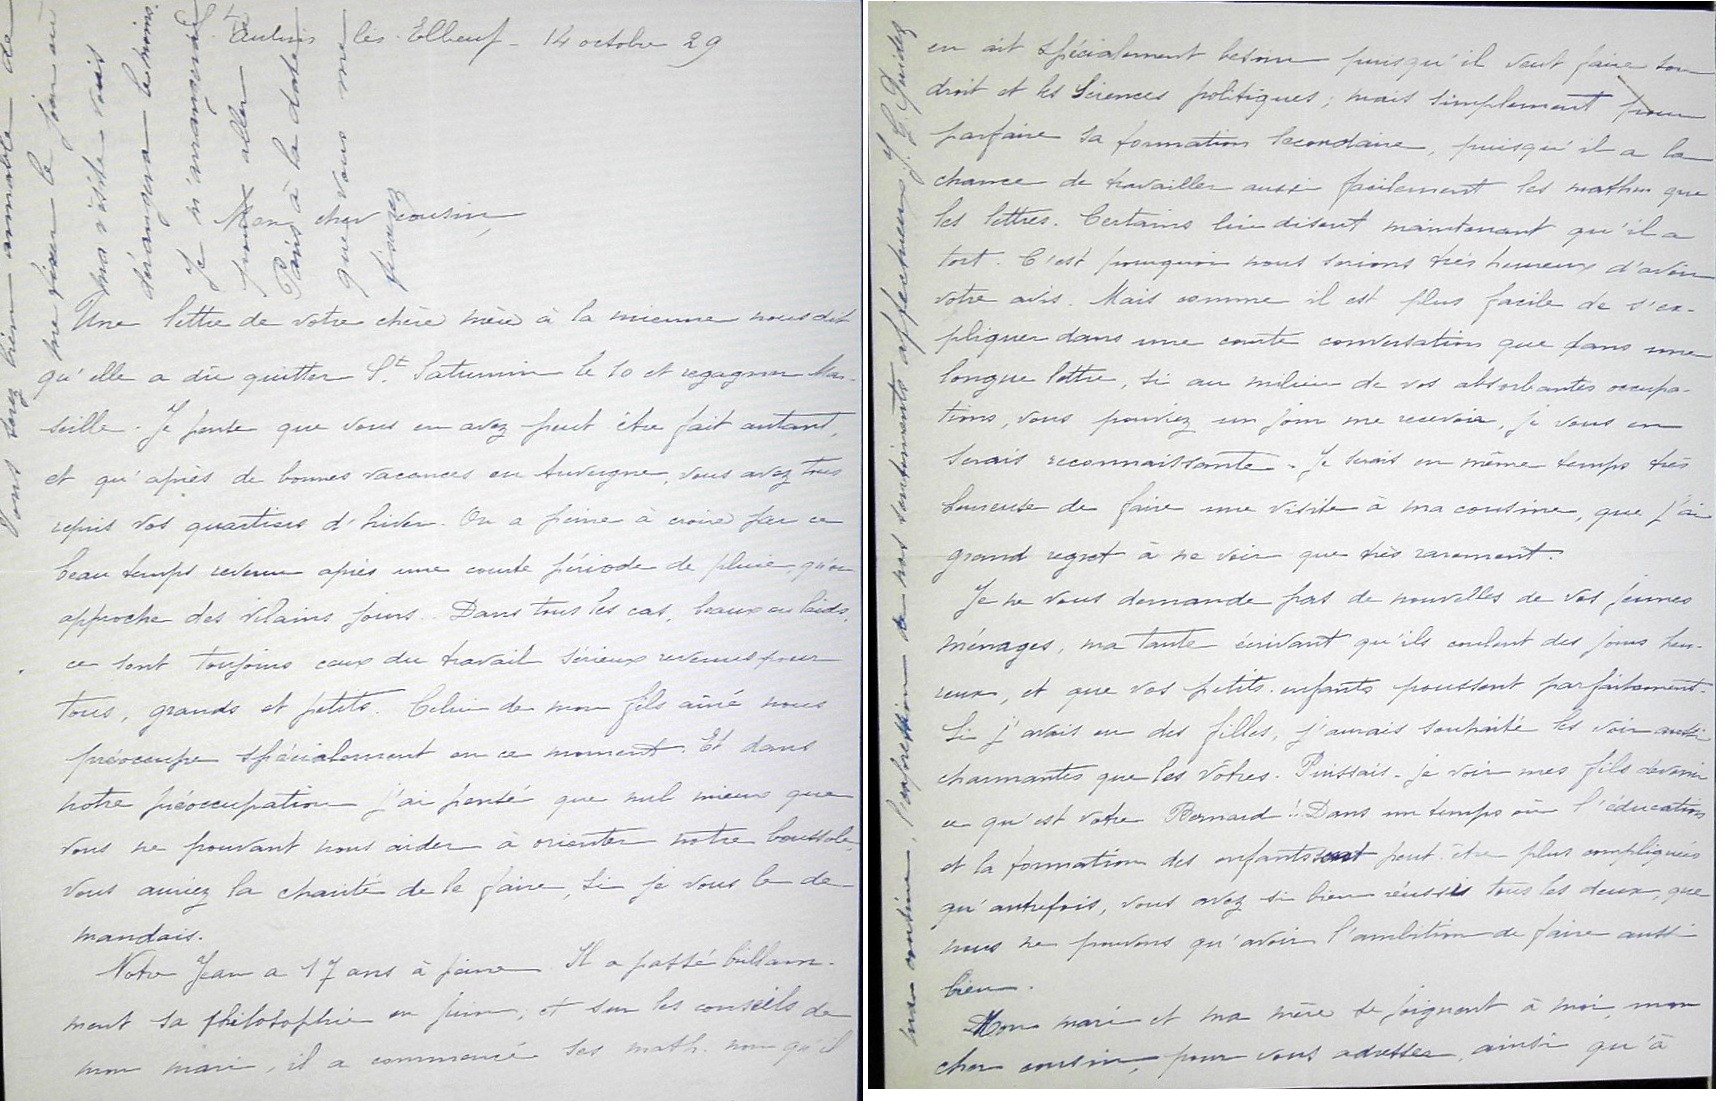 St Aubin les Elbeuf - 14 octobre 29
Mon cher cousin,
Une lettre de votre chère mère à la mienne nous dit
qu'elle a dû quitter St. Saturnin le 10 et regagner Mar-
seille. Je pense que vous en avez peut être fait autant,
et qu'après de bonnes vacances en Auvergne, vous avez tous
repris vos quartiers d'hiver. On a peine à croire par ce
beau temps revenu après une courte période de pluie qu'on
approche des vilains jours. Dans tous les cas, beaux ou laids,
ce sont toujours ceux du travail sérieux revenus pour
tous, grands et petits. Celui de mon fils aîné nous
préoccupe spécialement en ce moment. Et dans
notre préoccupation j'ai pensé que nul mieux que
vous ne pouvant nous aider à orienter notre boussole,
vous auriez la charité de le faire, si je vous le de-
mandais.
Notre Jean a 17 ans à peine. Il a passé brillam-
ment sa philosophie en juin, et sur les conseils de
mon mari, il a commencé ses math. non qu'il
en ait spécialement besoin puisqu'il veut faire son
droit et les Sciences politiques; mais simplement pour
parfaire sa formation secondaire, puisqu'il a la
chance de travailler aussi facilement les maths que
les lettres. Certains lui disent maintenant qu'il a
tort. C'est pourquoi nous serions très heureux d'avoir
votre avis. Mais comme il est plus facile de s'ex-
pliquer dans une courte conversation que dans une
longue lettre, si au milieu de vos absorbantes occupa-
tions, vous pouviez un jour me recevoir, je vous en
serais reconnaissante. Je serais en même temps très
heureuse de faire une visite à ma cousine, que j'ai
grand regret à ne voir que très rarement.
Je ne vous demande pas de nouvelles de vos jeunes
ménages, ma tante écrivant qu'ils coulent des jours heu-
reux, et que vos petits-enfants poussent parfaitement.
Si j'avais eu des filles, j'aurais souhaité les voir aussi
charmantes que les vôtres. Puissais-je voir mes fils devenir
ce qu'est votre Bernard!! Dans un temps où l'éducation
et la formation des enfants sont peut être plus compliquées
qu'autrefois, vous avez si bien réussi tous les deux, que
nous ne pouvons qu'avoir l'ambition de faire aussi
bien.
Mon mari et ma mère se joignent à moi, mon
cher cousin, pour vous adresser, ainsi qu'à
ma cousine, l'expression de nos sentiments affectueux. J. G.
Vous serez bien aimable de
me fixer le jour où
ma visite vous
dérangera le moins.
Je m'arrangerai
pour aller à
Paris à la date
que vous me
fixerez